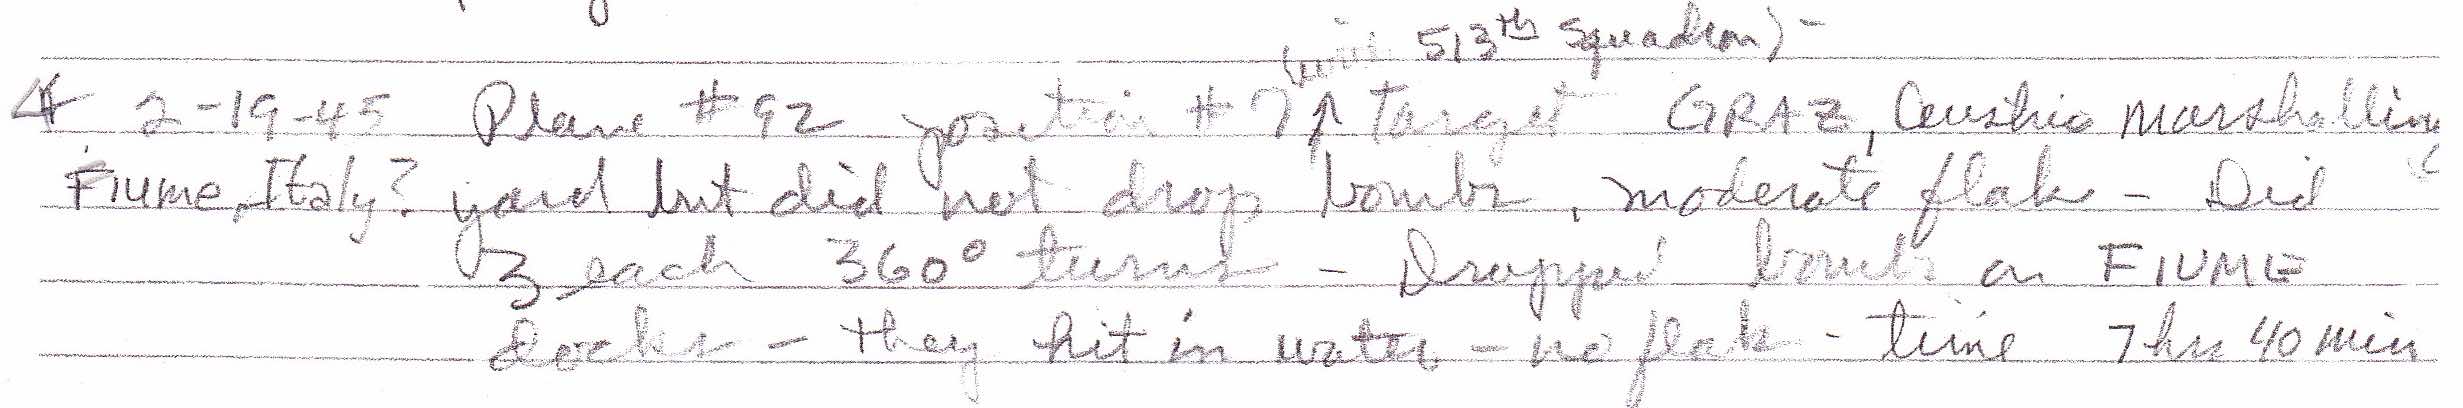 (with 513th Squadron) -
4 2-19-45 Plane #92 position #7↑ Target GRAZ, Austria Marshalling
Fiume, Italy? yard but did not drop bombs, moderate flak - Did
3 each 360° turns - Dropped bombs on FIUME
docks - they hit in water - no flak - time 7 hrs 40 min